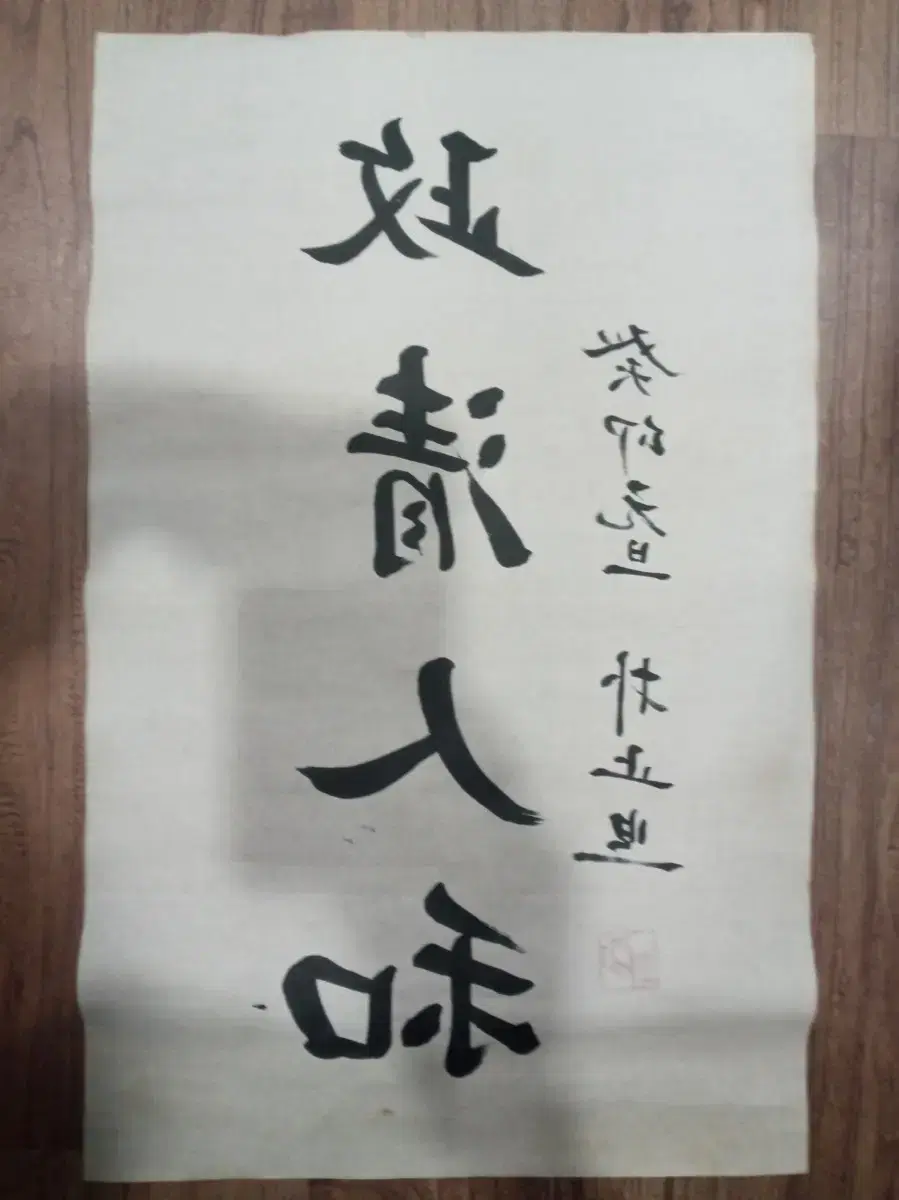 政清人和
癸卯元旦 朴正熙